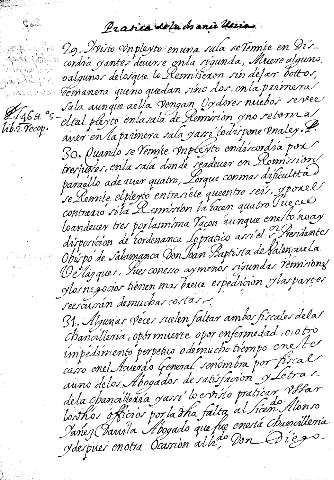 Pratica de la Chancilleria
29. Visto Un pleyto en una sala se Remite en Dis
cordia y antes de verse en la segunda, Muere alguno
o algunos de los que lo Remitieron sin dejar Vottos,
de manera que no quedan sino dos, en la primera
sala, aunque a ella Vengan Oydores nuebos se vee
el tal pleyto en la sala de Remision, y no se torna a
ver en la primera sala y assi lo dispone Una ley.
l. 46 tt. 5
lib. 2. Recop.
30. Quando se Remite Un pleyto en discordia por
tres jueces, en la sala donde se a de ver en Remission
para ello a de aver quatro, Porque con mas dificultad
se Remite el pleyto entre siete que entre seis. y por el
contrario si la Remision la hacen quatro Jueces
lo an de ver tres por la misma raçon aunque en esto no ay
disposicion de ordenanza lo practicó assi el Sr. Presidente
Obispo de Salamanca Don Juan Baptista de Valenzuela
Velazquez. Pues con esso ay menos segundas Remisiones
y los negocios tienen mas breve expedicion y las partes
se escusan de muchas costas.
31. Algunas veces suelen faltar ambos fiscales de la
Chancilleria, o por muerte o por enfermedad, o otro
impedimento perpetuo o de mucho tiempo en este
caso en el Acuerdo General se nombra por fiscal
a uno de los Abogados de satisfacion y Letras
de la Chancilleria y assi lo e visto praticar, y Usar
los dhos officios por la dha falta, al licendo. Alonso
Yañez Davila Abogado que fue en esta Chancilleria
y despues en otra Ocasion al ldo. Don Diego